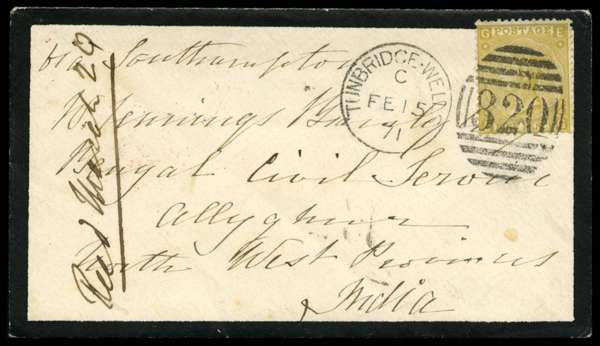 via Southampton
W Jennings
Bengal Civil Service
Allyghur
North West Provinces
India
Recd March 29
TUNBRIDGE-WELLS
C
FE 15
71
G POSTAGE E
820